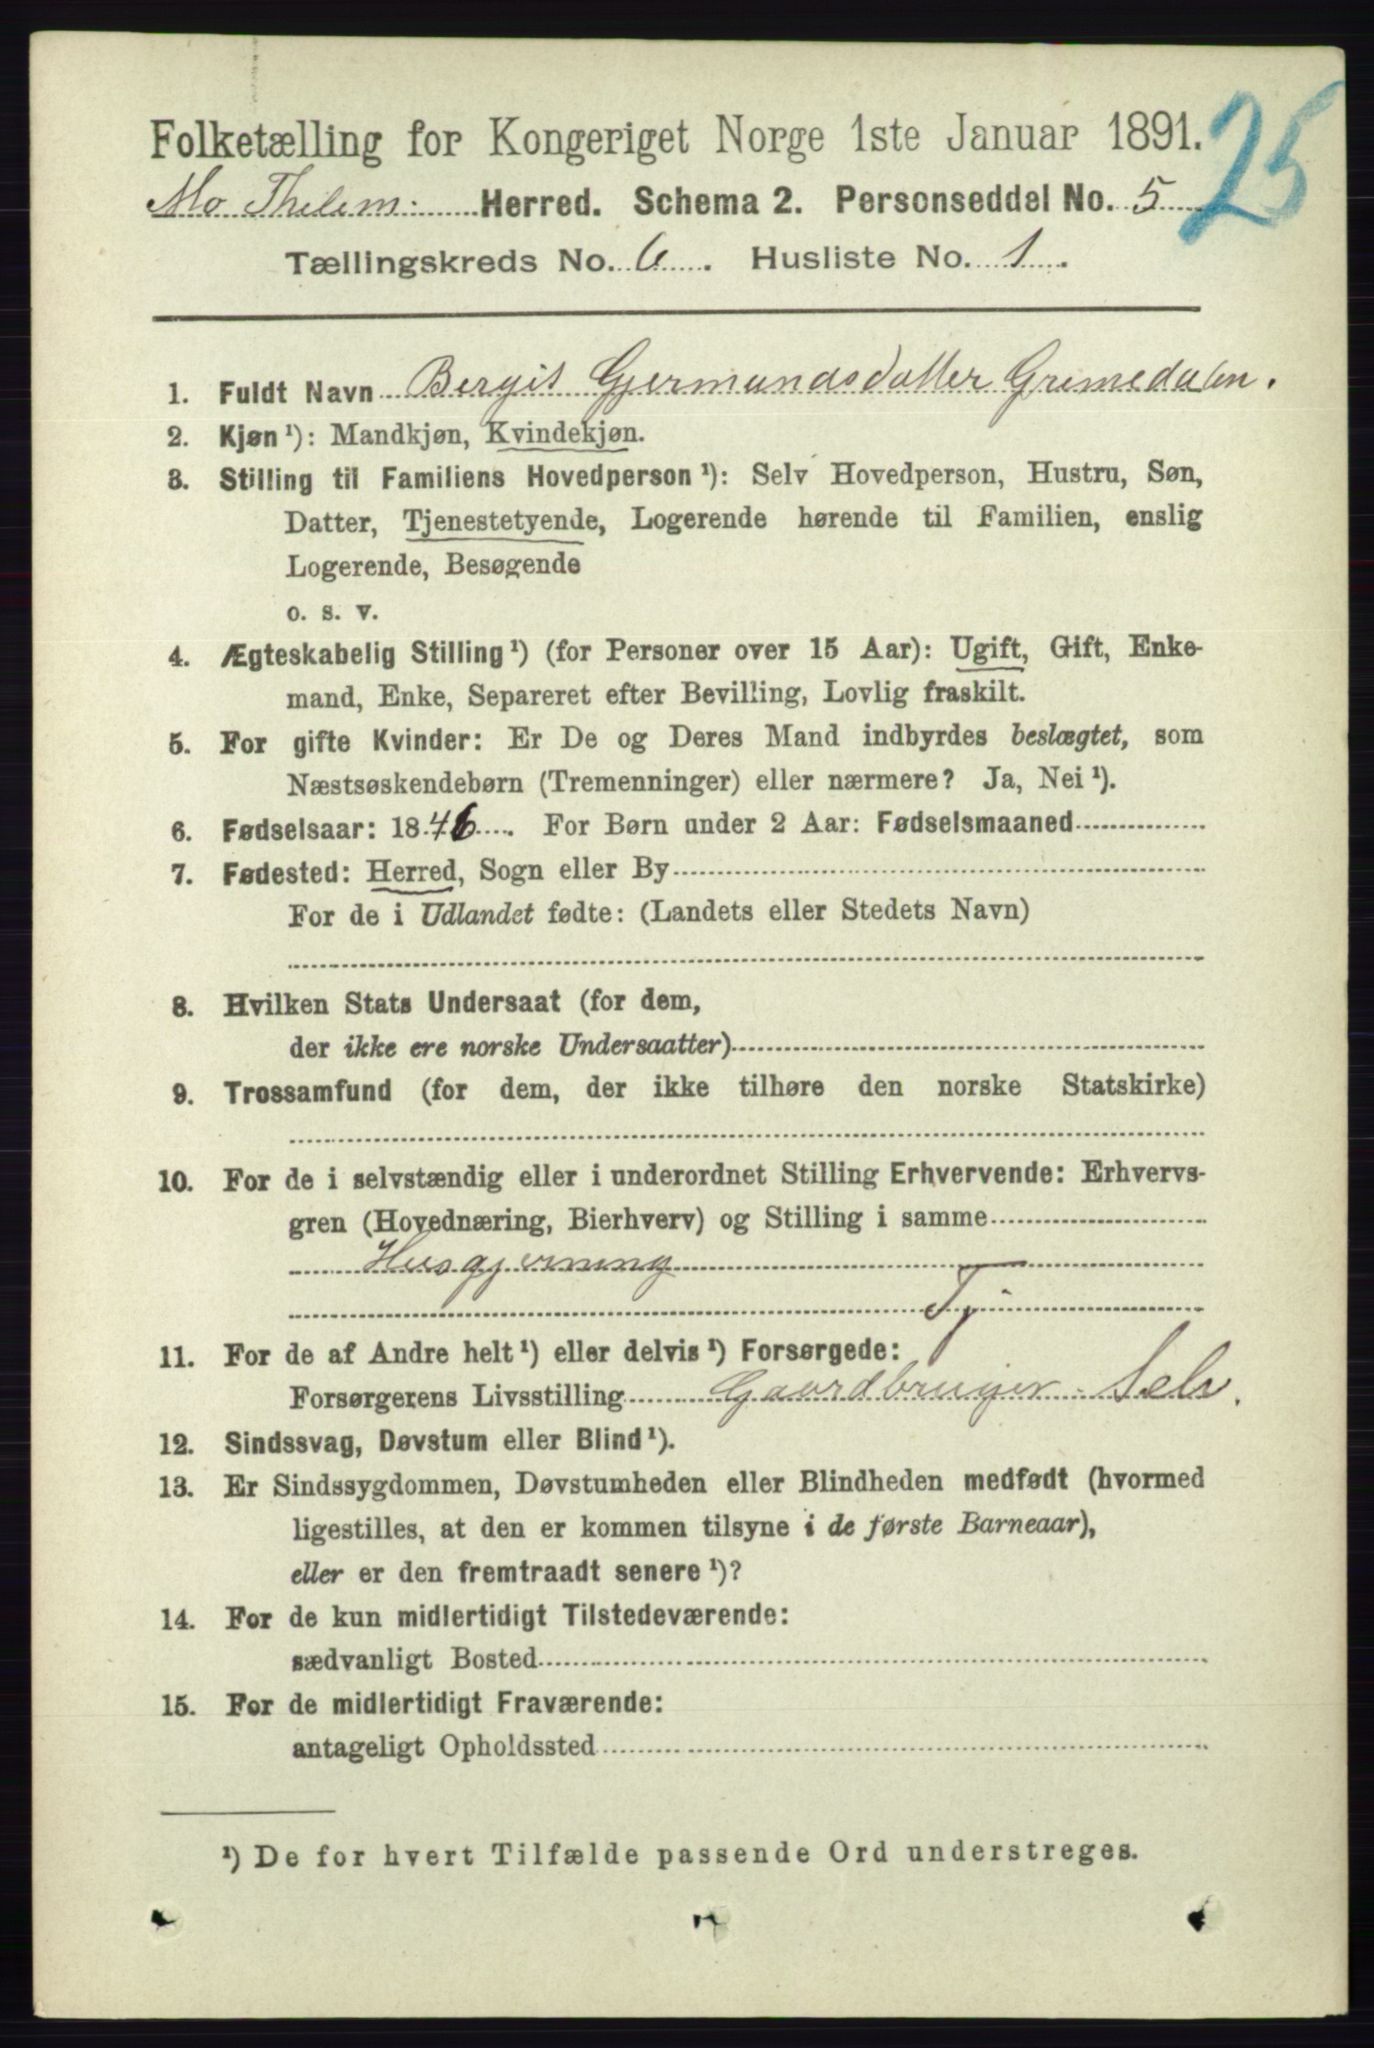 25
Folketælling for Kongeriget Norge 1ste Januar 1891.
Mo Thelem: Herred. Schema 2. Personseddel No. 5
Tællingskreds No. 6. Husliste No. 1.
1. Fuldt Navn Bergit Gjermundsdatter Grimedalen.
2. Kjøn¹): Mandkjøn, Kvindekjøn.
3. Stilling til Familiens Hovedperson¹): Selv Hovedperson, Hustru, Søn,
Datter, Tjenestetyende, Logerende hørende til Familien, enslig
Logerende, Besøgende
o. s. v.
4. Ægteskabelig Stilling¹) (for Personer over 15 Aar): Ugift, Gift, Enke-
mand, Enke, Separeret efter Bevilling, Lovlig fraskilt.
5. For gifte Kvinder: Er De og Deres Mand indbyrdes beslægtet, som
Næstsøskendebørn (Tremenninger) eller nærmere? Ja, Nei¹).
6. Fødselsaar: 1846. For Børn under 2 Aar: Fødselsmaaned
7. Fødested: Herred, Sogn eller By
For de i Udlandet fødte: (Landets eller Stedets Navn)
8. Hvilken Stats Undersaat (for dem,
der ikke ere norske Undersaatter)
9. Trossamfund (for dem, der ikke tilhøre den norske Statskirke)
10. For de i selvstændig eller i underordnet Stilling Erhvervende: Erhvervs-
gren (Hovednæring, Bierhverv) og Stilling i samme
Husgjerning
Tj
11. For de af Andre helt¹) eller delvis¹) Forsørgede:
Forsørgerens Livsstilling Gaardbruger Selv.
12. Sindssvag, Døvstum eller Blind¹).
13. Er Sindssygdommen, Døvstumheden eller Blindheden medfødt (hvormed
ligestilles, at den er kommen tilsyne i de første Barneaar),
eller er den fremtraadt senere¹)?
14. For de kun midlertidigt Tilstedeværende:
sædvanligt Bosted
15. For de midlertidigt Fraværende:
antageligt Opholdssted
¹) De for hvert Tilfælde passende Ord understreges.